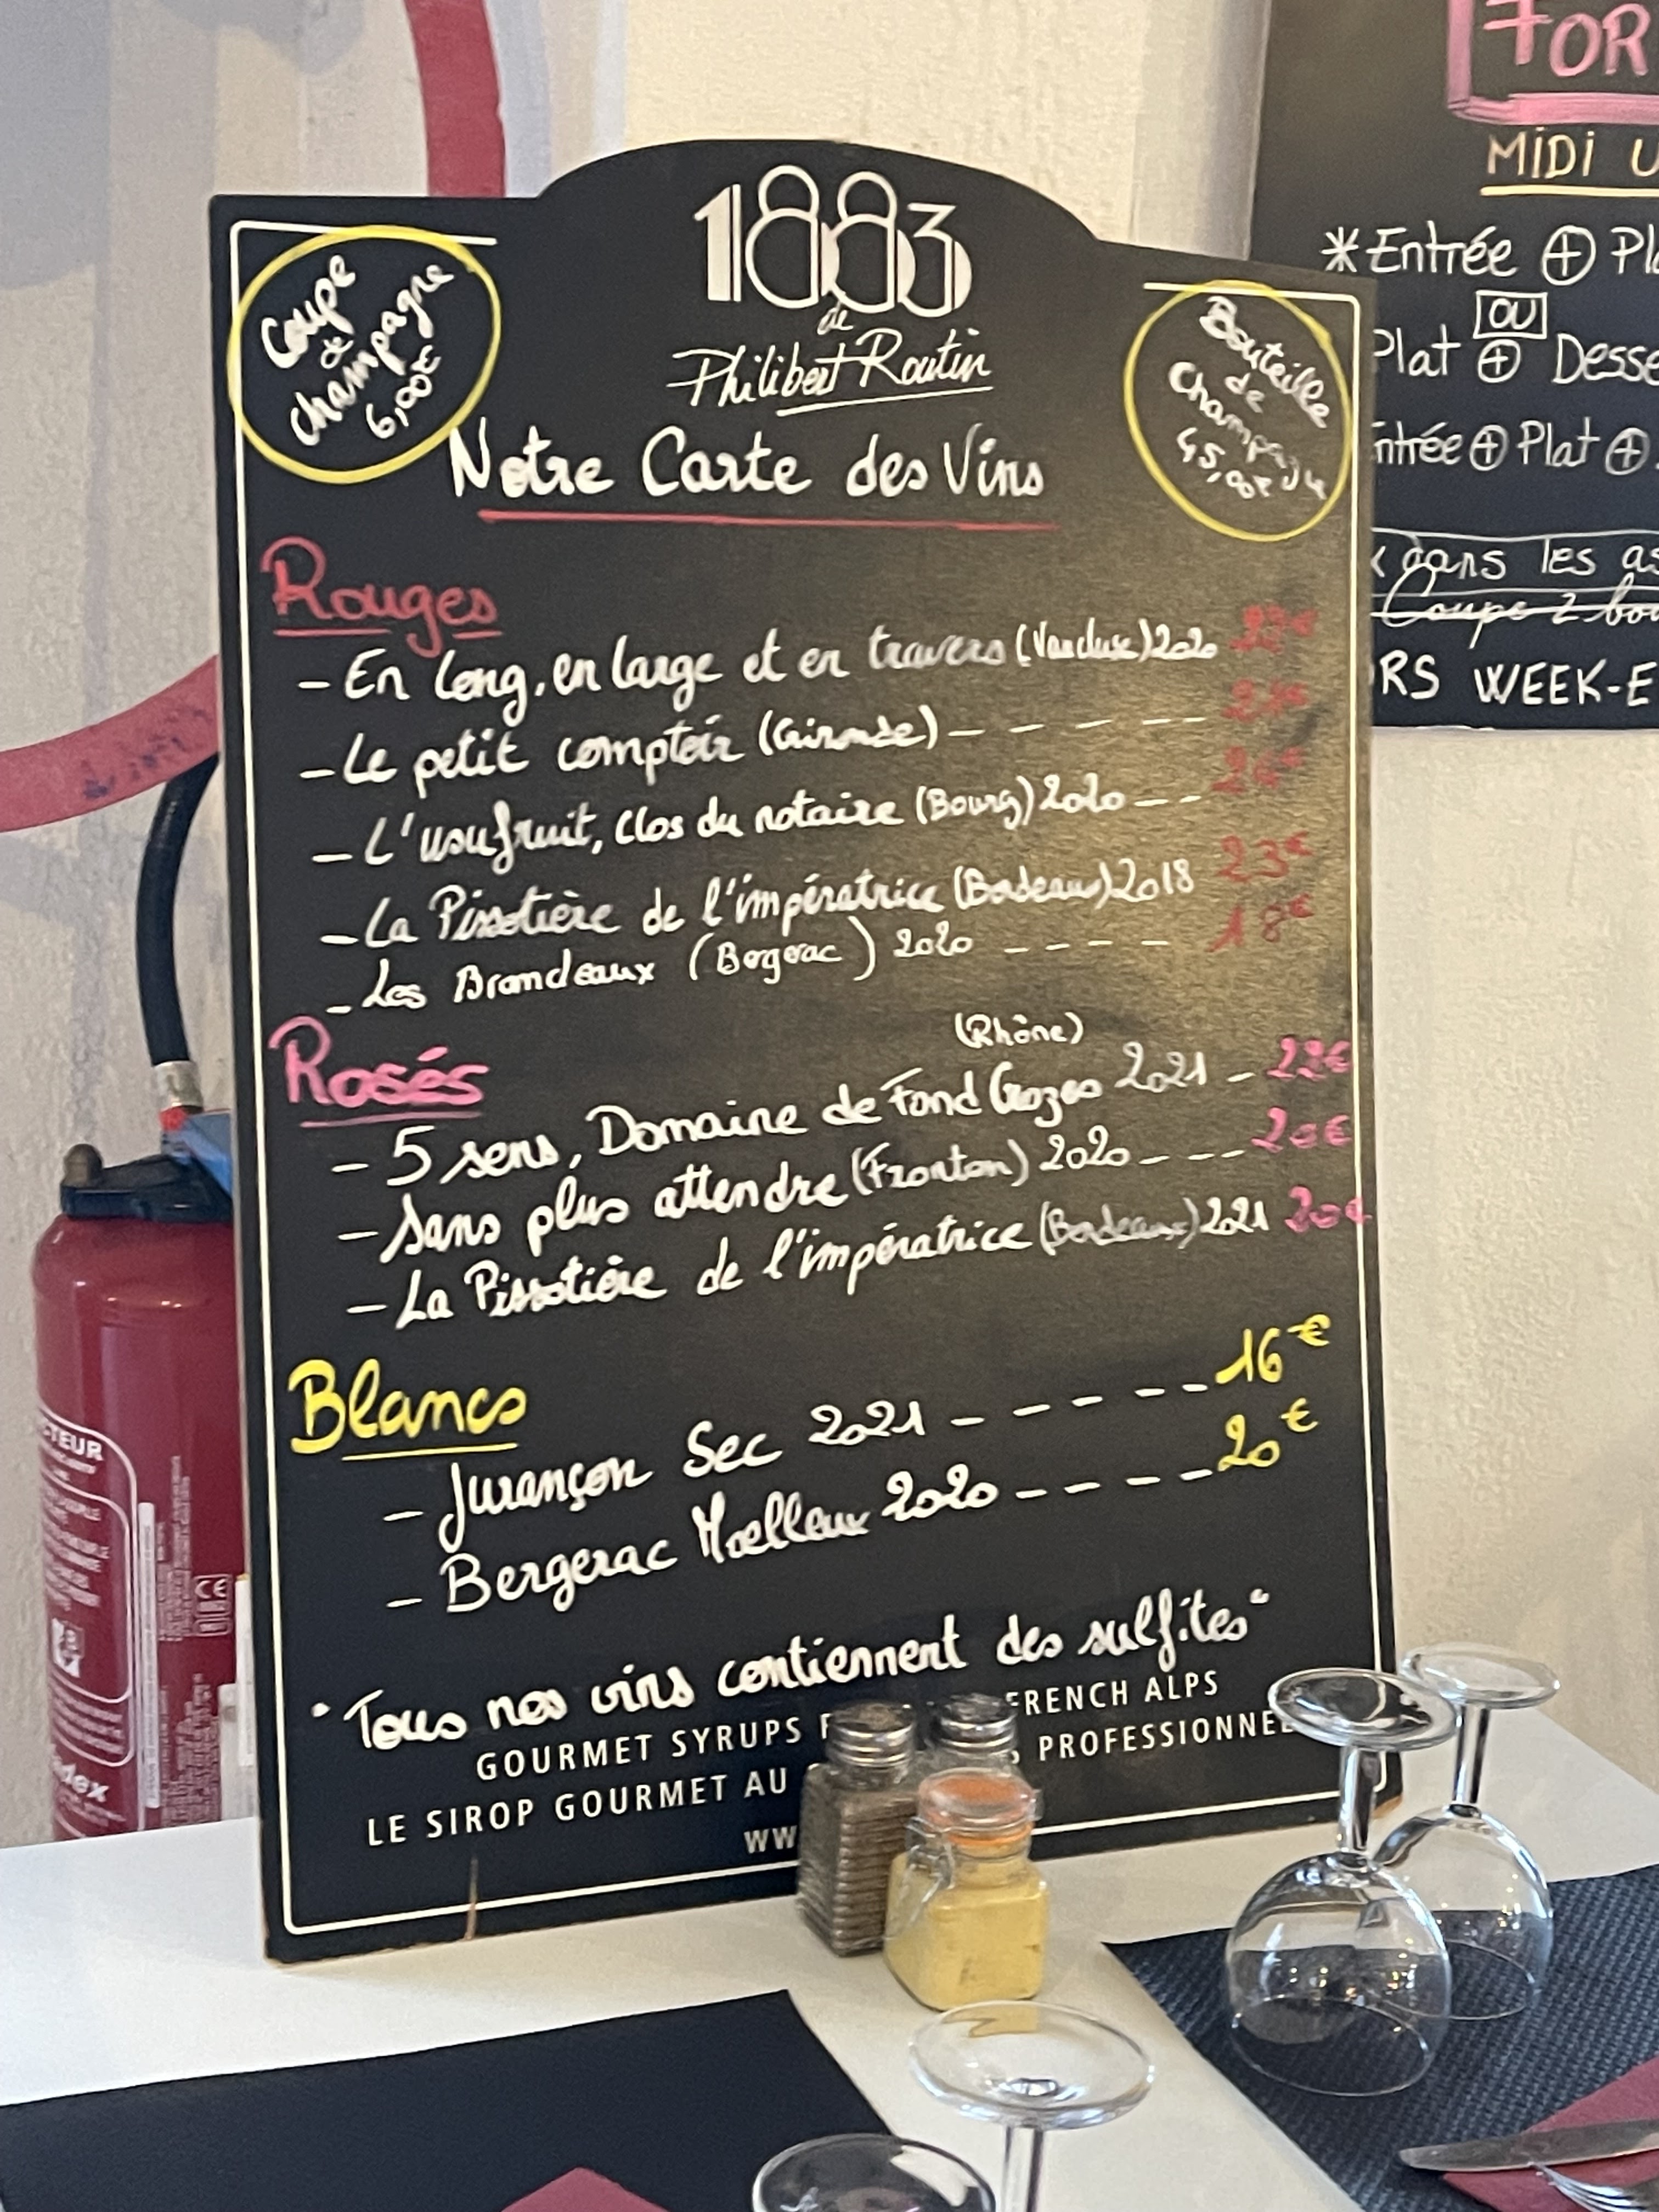 Coupe
de
champagne
6,00€
1883
de
Philibert Routin
Bouteille
de
Champagne
45,00€
Notre Carte des Vins
Rouges
- En long, en large et en travers (Vaucluse) 2020
- Le petit comptoir (Gironde) - - - - -
- L'usufruit, Clos du notaire (Bourg) 2020 - - 26€
- La Pissotière de l'impératrice (Bordeaux) 2018 23€
- Les Brandeaux (Bergerac) 2020 - - - - 18€
Rosés
(Rhône)
- 5 sens, Domaine de Fond Crozes 2021 - 22€
- Sans plus attendre (Fronton) 2020 - - - 20€
- La Pissotière de l'impératrice (Bordeaux) 2021 20€
Blancs
- Jurançon Sec 2021 - - - - - 16€
- Bergerac Moelleux 2020 - - - - 20€
"Tous nos vins contiennent des sulfites"
GOURMET SYRUPS FRENCH ALPS
LE SIROP GOURMET AU PROFESSIONNEL
WW
FOR
MiDi U
*Entrée + Pla
OU
Plat + Desse
ntrée + Plat +
dans les as
Coupe 2 bou
RS WEEK-E
TEUR
CE